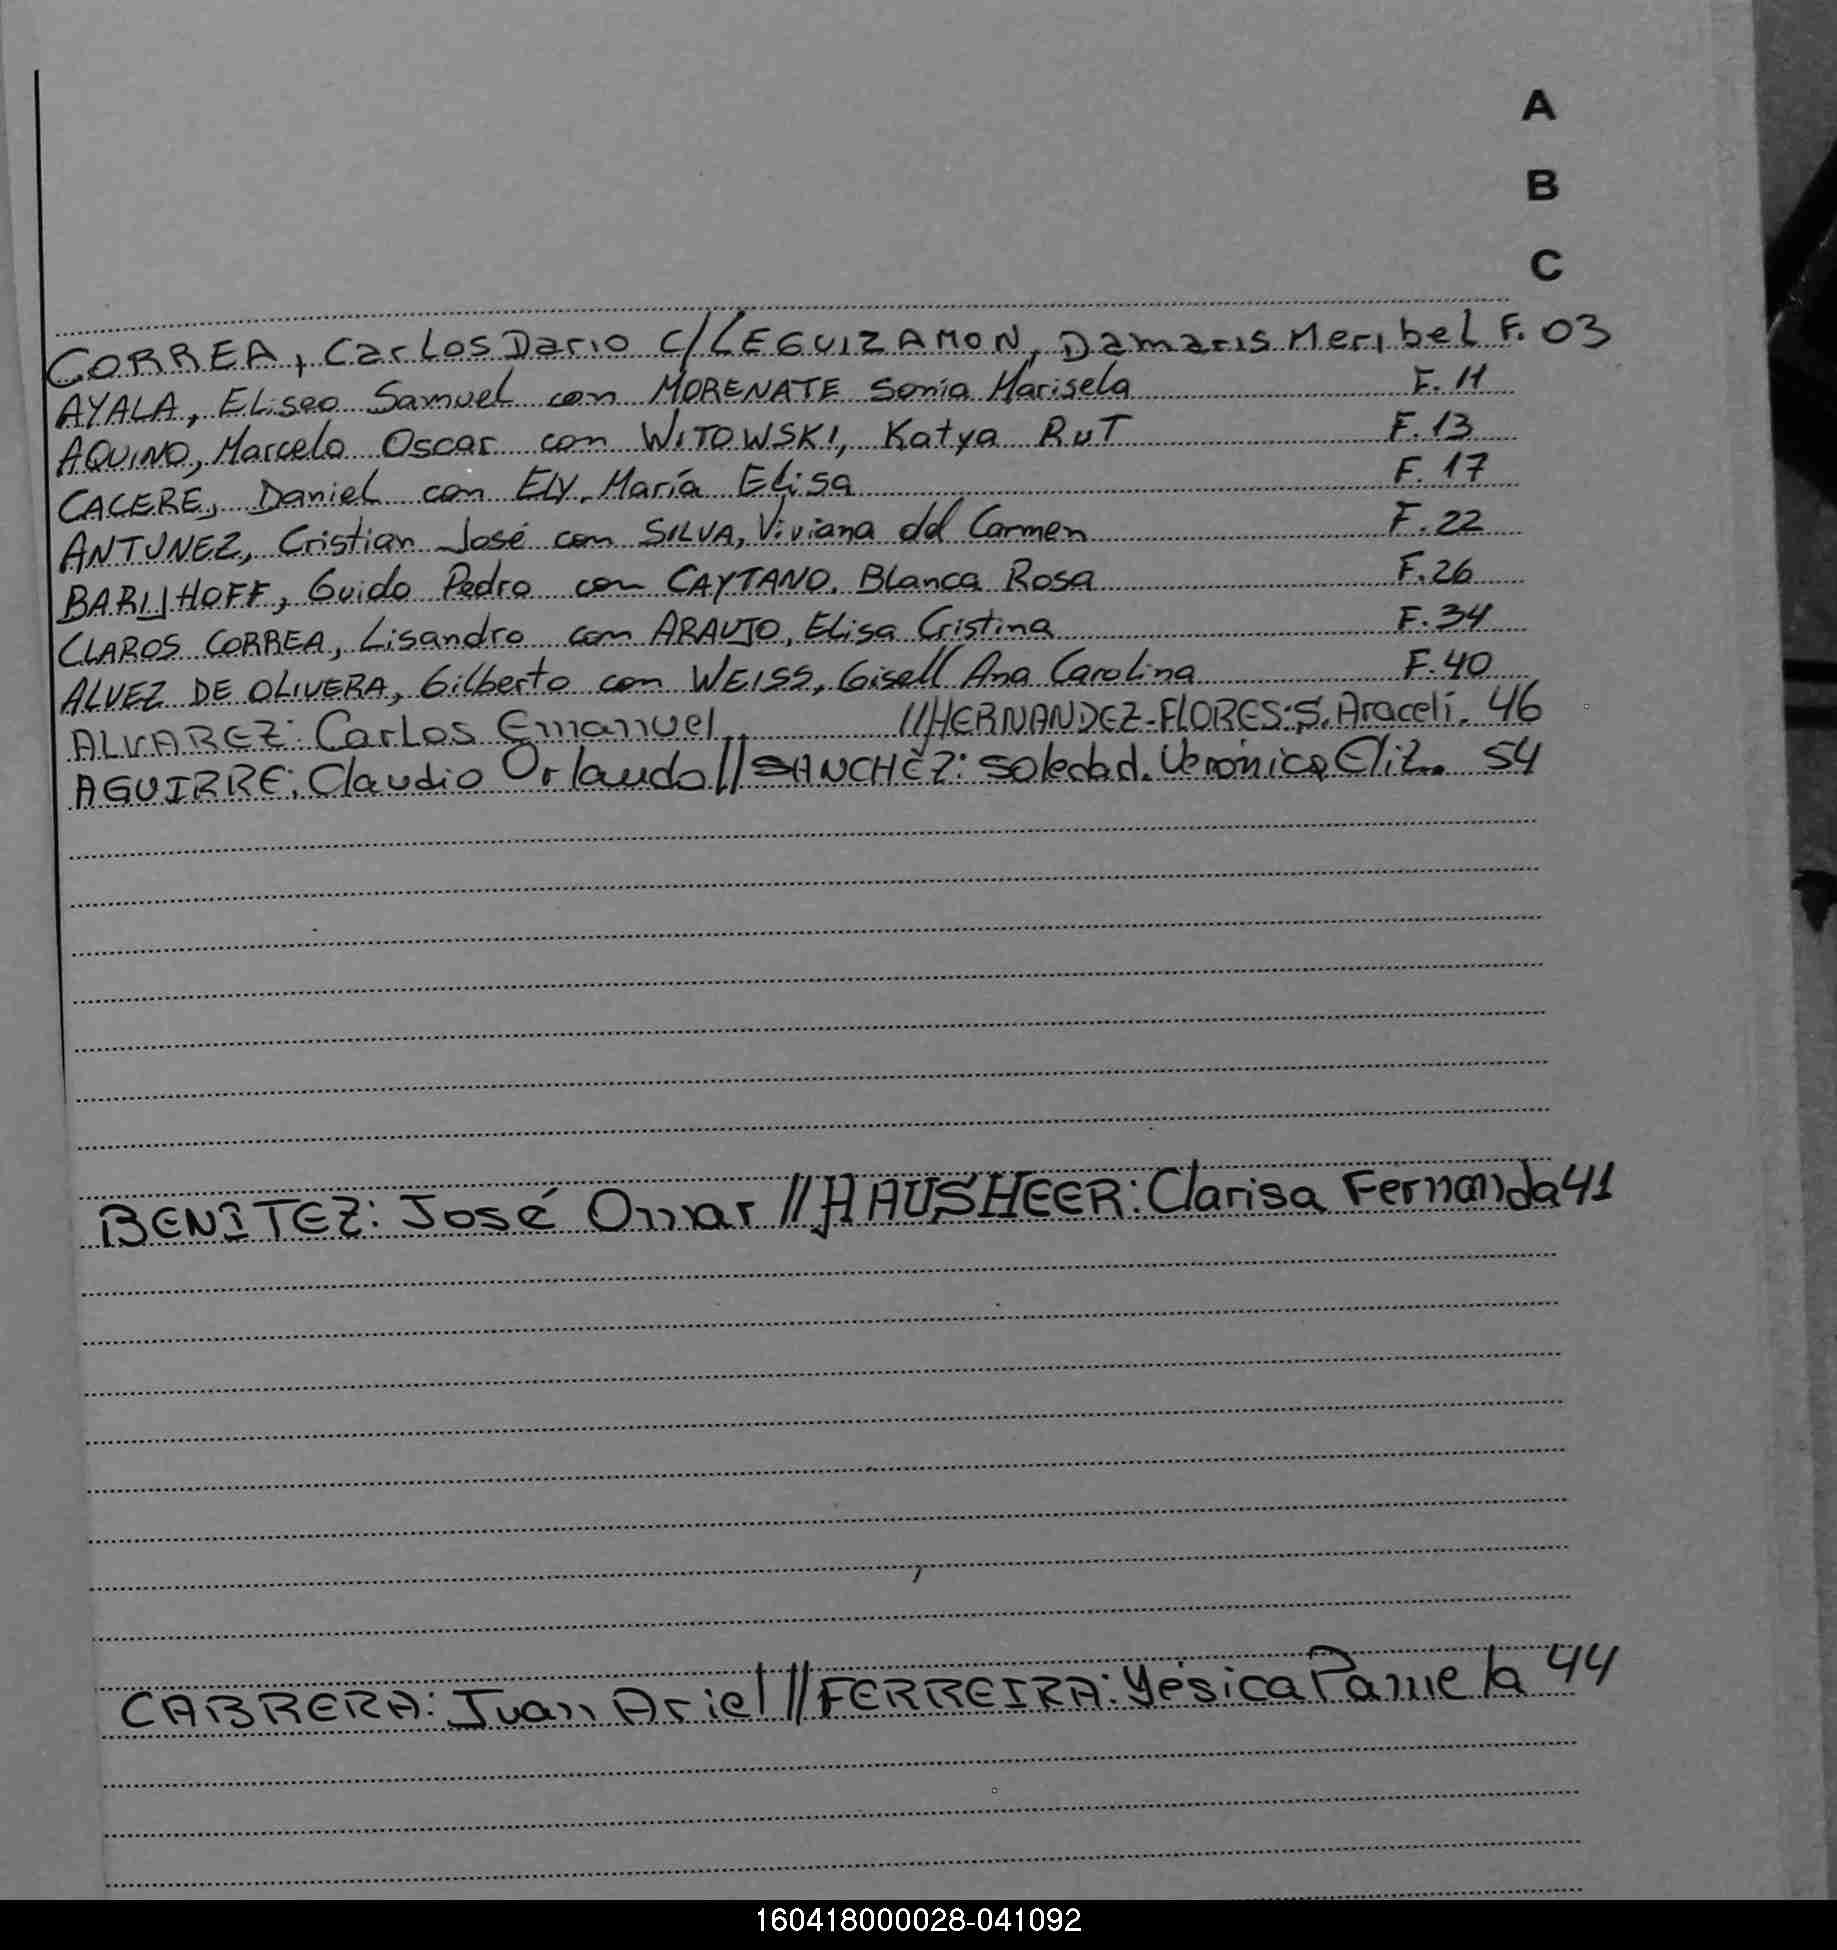 A
B
C
CORREA, Carlos Dario c/ LEGUIZAMON, Damaris Meribel F. 03
AYALA, Eliseo Samuel con MORENATE Sonia Marisela F. 11
AQUINO, Marcelo Oscar con WITOWSKI, Katya RuT F. 13
CACERE, Daniel con ELY, María Elisa F. 17
ANTUNEZ, Cristian José con SILVA, Viviana del Carmen F. 22
BARIJHOFF, Guido Pedro con CAYTANO, Blanca Rosa F. 26
CLAROS CORREA, Lisandro con ARAUJO, Elisa Cristina F. 34
ALVEZ DE OLIVERA, Gilberto con WEISS, Gisell Ana Carolina F. 40
ALVAREZ: Carlos Emanuel //HERNANDEZ-FLORES: S. Araceli. 46
AGUIRRE: Claudio Orlando// SANCHEZ: Soledad. Verónica Eliz. 54
BENITEZ: José Omar //HAUSHEER: Clarisa Fernanda 41
CABRERA: Juan Ariel //FERREIRA: Yésica Pamela 44
160418000028-041092